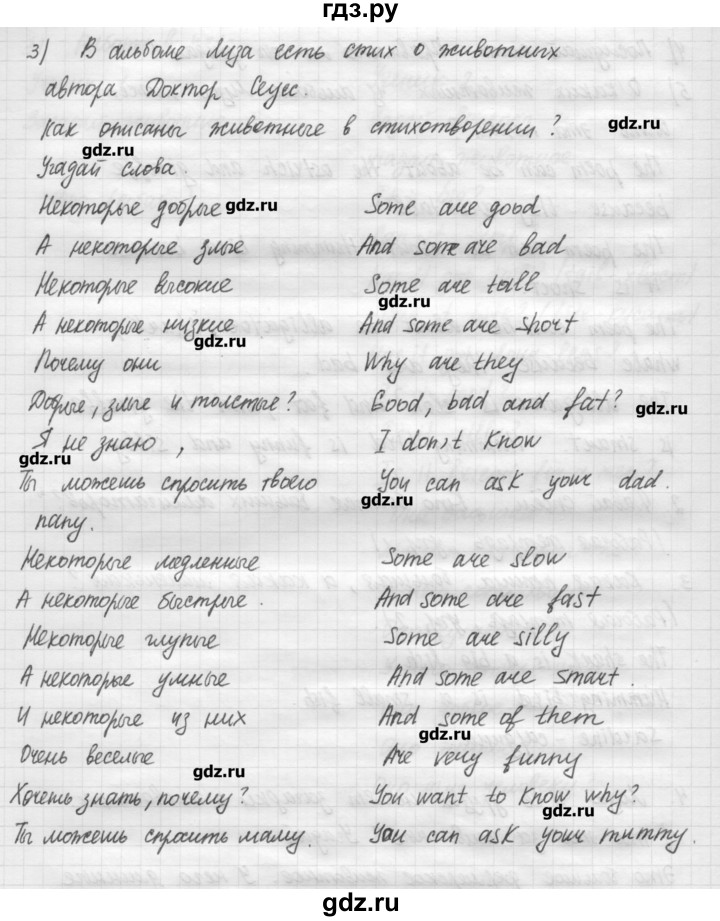 гдз.ру
3) В альбоме Лиза есть стих о животных
автора Доктор Сеуес.
Как описаны животные в стихотворении? gdz.ru
gdz.ru
Угадай слова.
Некоторые добрые gdz.ru Some are good
А некоторые злые And some are bad
Некоторые высокие Some are tall
gdz.ru
А некоторые низкие And some are short
gdz.ru
Почему они Why are they
Добрые, злые и толстые? Good, bad and fat? gdz.ru
Я не знаю, I don't know
gdz.ru
Ты можешь спросить твоего You can ask your dad.
gdz.ru
папу.
Некоторые медленные Some are slow
А некоторые быстрые. And some are fast
Некоторые глупые Some are silly
А некоторые умные And some are smart.
И некоторые из них And some of them
gdz.ru
Очень веселые Are very funny
gdz.ru
Хочешь знать, почему? You want to know why?
gdz.ru
Ты можешь спросить маму. You can ask your mummy.
gdz.ru